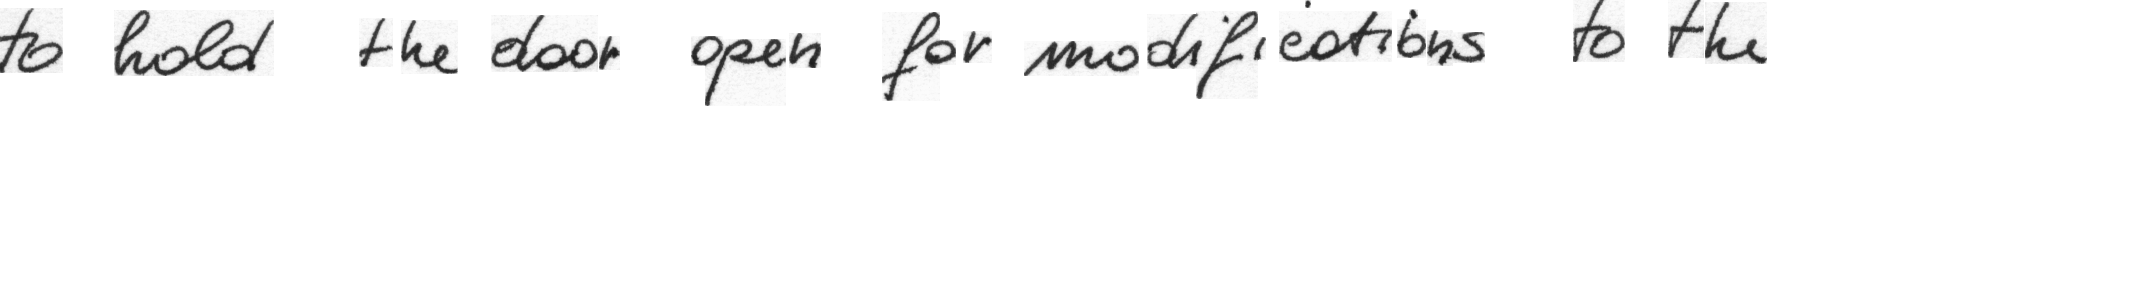 to hold the door open for modifications to the